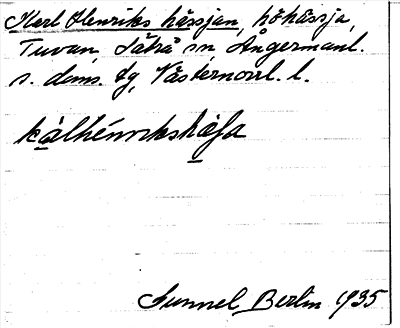 Karl Henriks hässjan, höhässja,
Tuvan, Sätrå sn, Ångermanl.
s. doms. tg, Västernorrl. l.
kálhénrikshás̄ʃa
Gunnel Berlin 1935